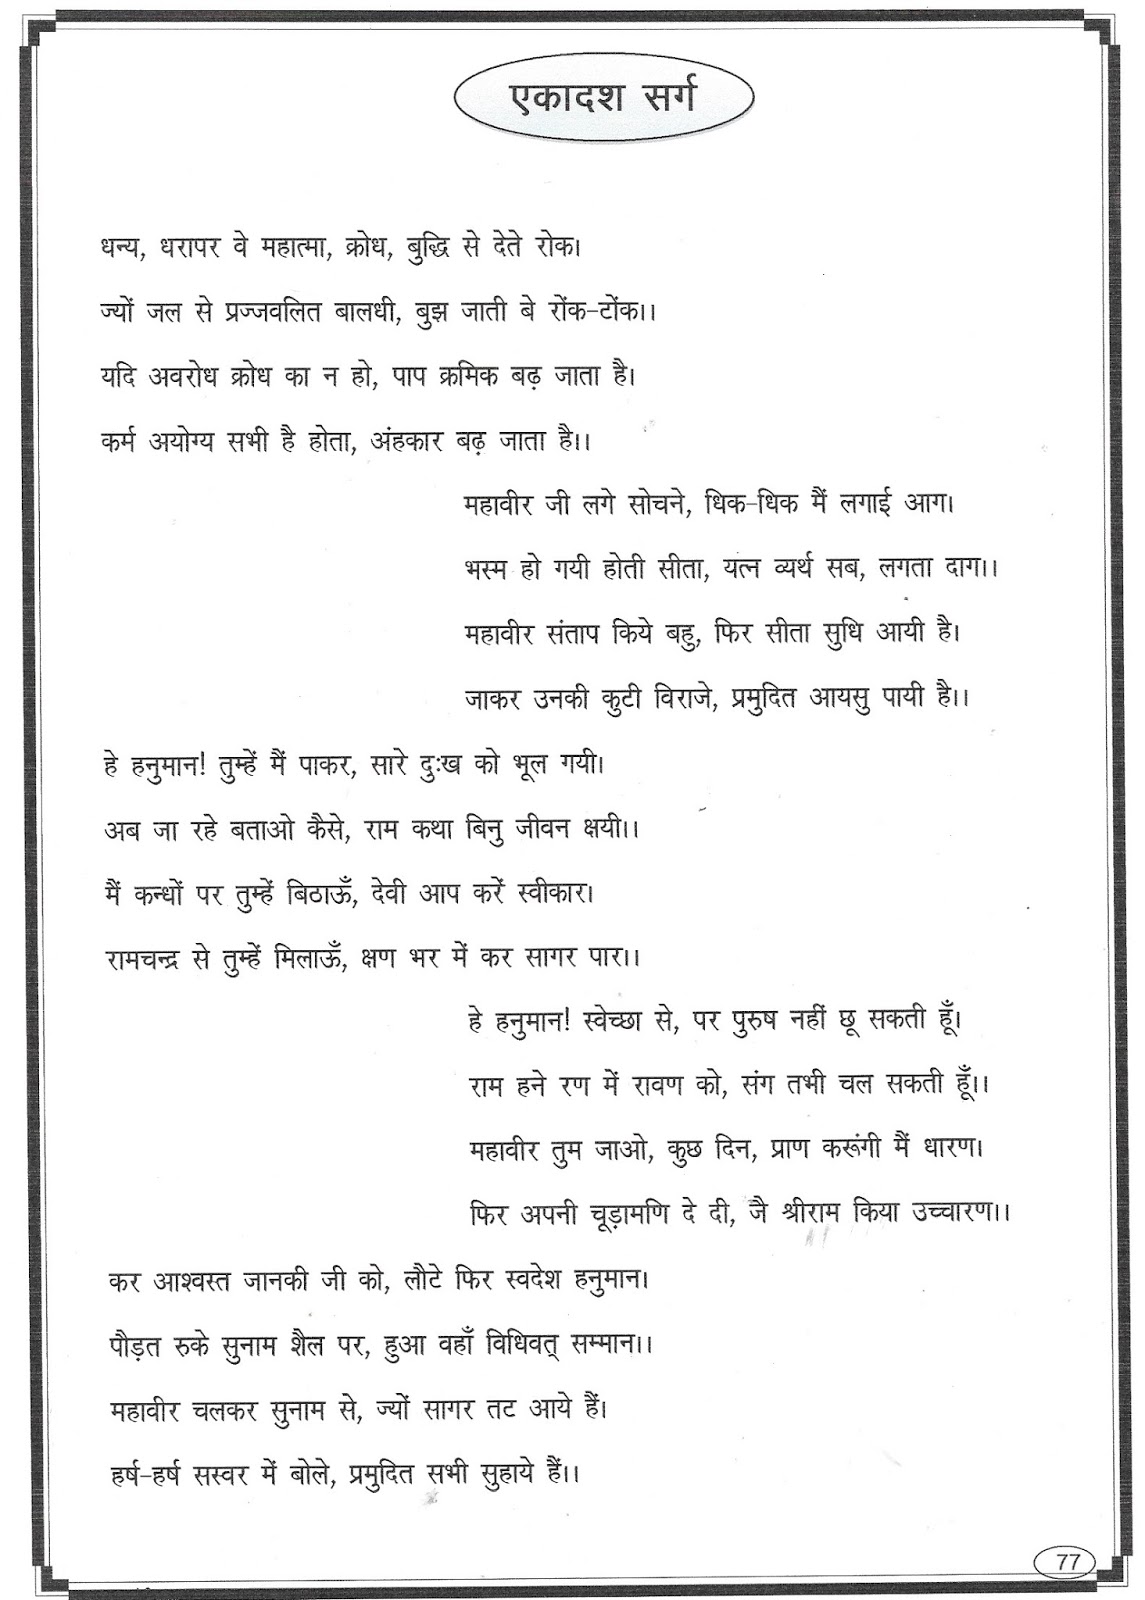 एकादश सर्ग
धन्य, धरापर वे महात्मा, क्रोध, बुद्धि से देते रोक।
ज्यों जल से प्रज्जवलित बालधी, बुझ जाती बे रोंक-टोंक।।
यदि अवरोध क्रोध का न हो, पाप क्रमिक बढ़ जाता है।
कर्म अयोग्य सभी है होता, अंहकार बढ़ जाता है।।
महावीर जी लगे सोचने, धिक-धिक मैं लगाई आग।
भस्म हो गयी होती सीता, यत्न व्यर्थ सब, लगता दाग।।
महावीर संताप किये बहु, फिर सीता सुधि आयी है।
जाकर उनकी कुटी विराजे, प्रमुदित आयसु पायी है।।
हे हनुमान! तुम्हें मैं पाकर, सारे दुःख को भूल गयी।
अब जा रहे बताओ कैसे, राम कथा बिनु जीवन क्षयी।।
मैं कन्धों पर तुम्हें बिठाऊँ, देवी आप करें स्वीकार।
रामचन्द्र से तुम्हें मिलाऊँ, क्षण भर में कर सागर पार।।
हे हनुमान! स्वेच्छा से, पर पुरुष नहीं छू सकती हूँ।
राम हने रण में रावण को, संग तभी चल सकती हूँ।।
महावीर तुम जाओ, कुछ दिन, प्राण करूंगी मैं धारण।
फिर अपनी चूड़ामणि दे दी, जै श्रीराम किया उच्चारण।।
कर आश्वस्त जानकी जी को, लौटे फिर स्वदेश हनुमान।
पौड़त रुके सुनाम शैल पर, हुआ वहाँ विधिवत् सम्मान।।
महावीर चलकर सुनाम से, ज्यों सागर तट आये हैं।
हर्ष-हर्ष सस्वर में बोले, प्रमुदित सभी सुहाये हैं।।
77